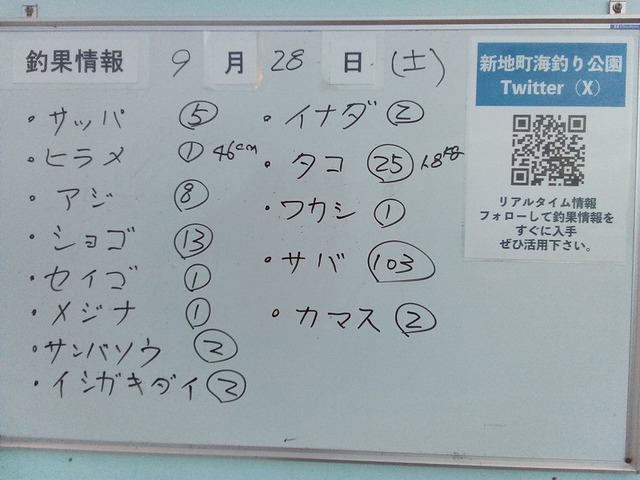 釣果情報 9月28日(土)
・サッパ ⑤
・ヒラメ ① 46cm
・アジ ⑧
・ショゴ ⑬
・セイゴ ①
・メジナ ①
・サンバソウ ②
・イシガキダイ ②
・イナダ ②
・タコ ㉕
・ワカシ ①
・サバ 103
・カマス ②
新地町海釣り公園
Twitter（X）
リアルタイム情報
フォローして釣果情報を
すぐに入手
ぜひ活用下さい。